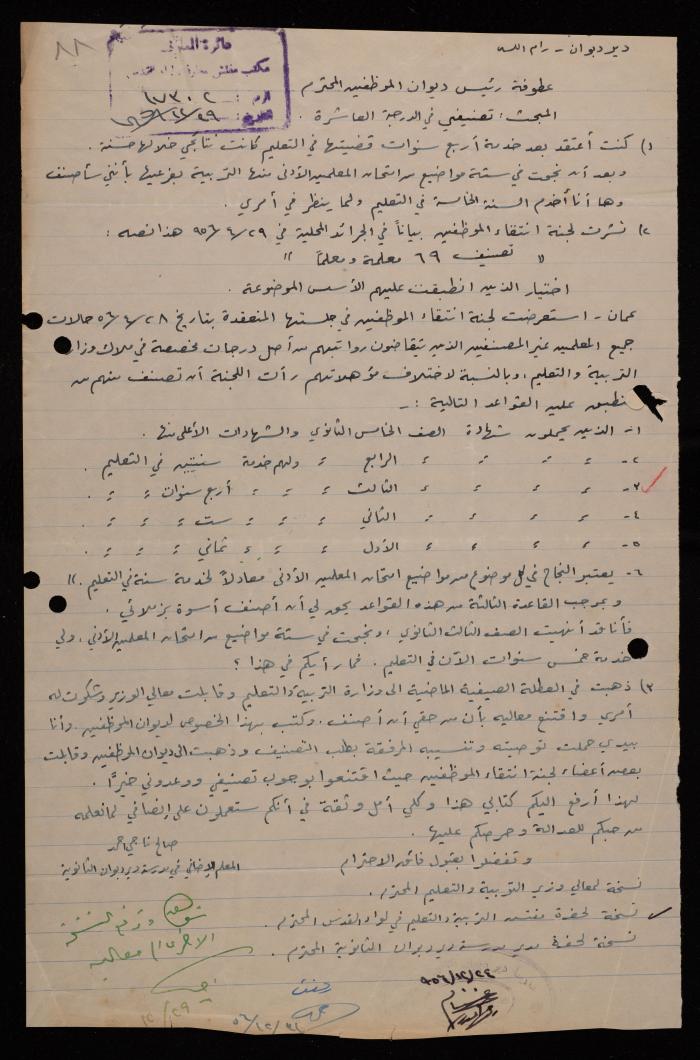 دير ديوان - رام الله
٨٨
دائرة المعارف
مكتب مفتش معارف لواء القدس
الرقم: ١٠٧٣٠٢
التاريخ: ٢٩/١٢/
عطوفة رئيس ديوان الموظفين المحترم
المبحث: تصنيفي في الدرجة العاشرة.
١) كنت أعتقد بعد خدمة أربع سنوات قضيتها في التعليم كانت نتائجي خلالها حسنة.
وبعد أن نجحت في ستة مواضيع من امتحان المعلمين الأدنى منها التربية بفرعيها بأنني سأصنف
وها أنا أخدم السنة الخامسة في التعليم ولما ينظر في أمري.
٢) نشرت لجنة انتقاء الموظفين بياناً في الجرائد المحلية في ٢٩/٤/٩٥٦ هذا نصه:
" تصنيف ٦٩ معلمة ومعلماً "
اختيار الذين انطبقت عليهم الأسس الموضوعة.
عمان - استعرضت لجنة انتقاء الموظفين في جلستها المنعقدة بتاريخ ٢٨/٤/٥٦ حالات
جميع المعلمين غير المصنفين الذين يتقاضون رواتبهم من أصل درجات مخصصة في ملاك وزارة
التربية والتعليم، وبالنسبة لاختلاف مؤهلاتهم رأت اللجنة أن تصنف منهم من
تنطبق عليه القواعد التالية :-
١- الذين يحملون شهادة الصف الخامس الثانوي والشهادات الأعلى منها.
٢- ، ، ، ، الرابع ، ولهم خدمة سنتين في التعليم.
٣- ، ، ، ، الثالث ، ، ، أربع سنوات ، ،.
٤- ، ، ، ، الثاني ، ، ، ست ، ، ،.
٥- ، ، ، ، الأول ، ، ، ثماني ، ، ،.
٦- يعتبر النجاح في كل موضوع من مواضيع امتحان المعلمين الأدنى معادلاً لخدمة سنة في التعليم. "
وبموجب القاعدة الثالثة من هذه القواعد يحق لي أن أصنف أسوة بزملائي.
فأنا قد أنهيت الصف الثالث الثانوي، ونجحت في ستة مواضيع من امتحان المعلمين الأدنى، ولي
خدمة خمس سنوات الآن في التعليم. فما رأيكم في هذا؟
٣) ذهبت في العطلة الصيفية الماضية الى وزارة التربية والتعليم وقابلت معالي الوزير وشكوت له
أمري واقتنع معاليه بأن من حقي أن أصنف، وكتب بهذا الخصوص لديوان الموظفين. وأنا
بيدي حملت توصيته وتنسيبه المرفقة بطلب التصنيف وذهبت الى ديوان الموظفين وقابلت
بعض أعضاء لجنة انتقاء الموظفين حيث اقتنعوا بوجوب تصنيفي ووعدوني خيراً.
لهذا أرفع اليكم كتابي هذا وكلي أمل وثقة في أنكم ستعملون على إنصافي لما نعلمه
من حبكم للعدالة وحرصكم عليها.
وتفضلوا بقبول فائق الاحترام
صالح ناجي احمد
المعلم الإضافي في مدرسة دير ديوان الثانوية
نسخة لمعالي وزير التربية والتعليم المحترم.
نسخة لحضرة مفتش التربية والتعليم في لواء القدس المحترم.
نسخة لحضرة مدير مدرسة دير ديوان الثانوية المحترم.
٩٥٦/١٢/٢٤
معاليه
٢٩/١٢
حفظ
٥٦/١٢/٣١